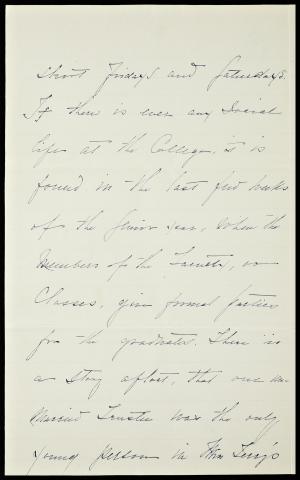 short Fridays and Saturdays.
If there is ever any Social
life at the College, it is
found in the last few weeks
of the Senior year, when the
Members of the Faculty, or
Classes, give formal parties
for the graduates. There is
a story afloat, that one un-
Married Trustee was the only
young person in Miss